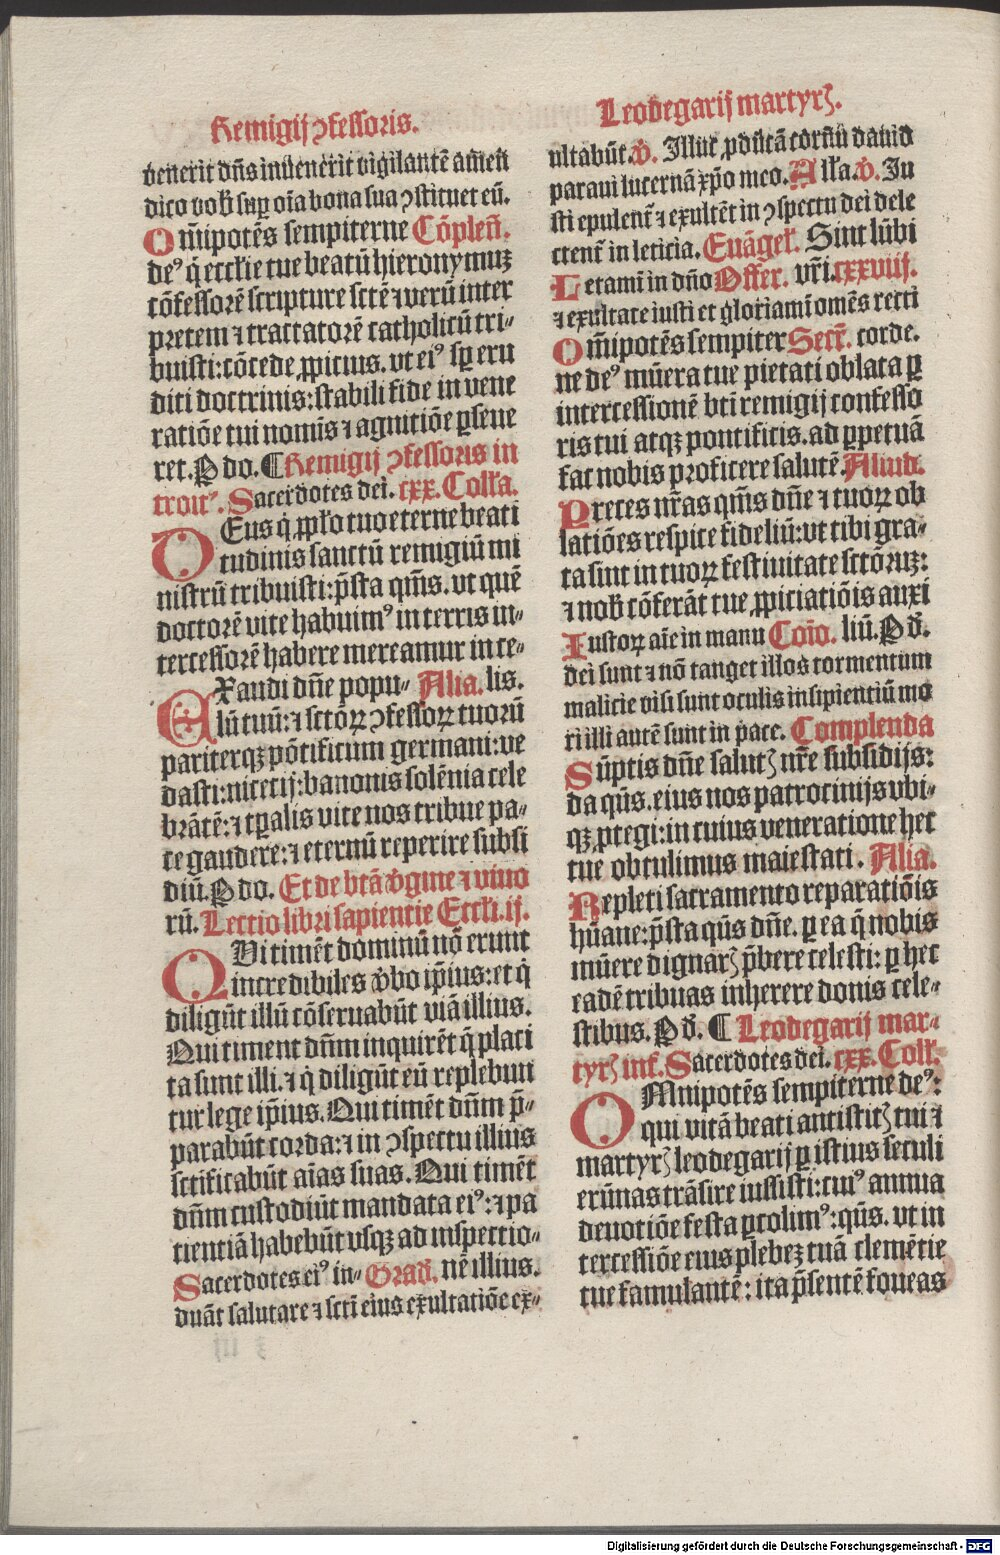 Remigij ꝯfessoris.
venerit dn̄s inuenerit vigilantē amen
dico vob̄ suꝑ oīa bona sua ꝯstituet eū.
Om̄ipotēs sempiterne Cōpleñ.
deꝰ q̇ ecclīe tue beatū hieronymuꝫ
cōfessorē scripture sctē ⁊ verū inter
pretem ⁊ tractatorē catholicū tri-
buisti: cōcede ꝓpicius. vt eiꝰ sꝑ eru
diti doctrinis: stabili fide in vene
ratiōe tui nomīs ⁊ agnitiōe ꝑseue
ret. P do. ¶ Remigij ꝯfessoris in
troitꝰ. Sacerdotes dei. cxx. Coll'a.
DEus q̇ ppl'o tuo eterne beati
tudinis sanctū remigiū mi
nistrū tribuisti: p̄sta qm̄s. vt quē
doctorē vite habuimꝰ in terris in-
tercessorē habere mereamur in ce-
EXaudi dn̄e popu- Alia. lis.
lū tuū: ⁊ sctōꝝ ꝯfessoꝝ tuorū
pariterqꝫ pōtificum germani: ve
dasti: nicetij: bauonis solēnia cele
brātē: ⁊ tꝑalis vite nos tribue pa-
ce gaudere: ⁊ eternū reperire subsi
diū. P do. Et de btā v̇gine ⁊ viuo
rū. Lectio libri sapientie Eccl'i. ij.
QVi timēt dominū nō erunt
incredibiles v̇bo ip̄ius: et q̇
diligūt illū cōseruabūt viā illius.
Qui timent dūm inquirēt q̄ placi
ta sunt illi. ⁊ q̇ diligūt eū replebun
tur lege ip̄ius. Qui timēt dūm p̄-
parabūt corda: ⁊ in ꝯspectu illius
sctificabūt aīas suas. Qui timēt
dūm custodiūt mandata eiꝰ: ⁊ pa
cientiā habebūt vsqꝫ ad inspectio-
Sacerdotes eiꝰ in- Grad̄. nē illius.
duāt salutare ⁊ scti eius exultatiōe ex-
Leodegarij martyrꝫ.
ultabūt. v̇. Illuc ꝓducā cornū dauid
paraui lucernā xp̄o meo. All'a. v̇. Iu
sti epulent̄ ⁊ exultēt in ꝯspectu dei dele
ctent̄ in leticia. Euāgel'. Sint lūbi
Letami in dn̄o Offer. vr̄i. cxxviij.
⁊ exultate iusti et gloriami omēs recti
Om̄ipotēs sempiter Secr̄. corde.
ne deꝰ mūera tue pietati oblata ꝑ
intercessionē bti remigij confesso
ris tui atqꝫ pontificis. ad ꝑpetuā
fac nobis proficere salutē. Aliud.
Preces nr̄as qm̄s dn̄e ⁊ tuoꝝ ob
latiōes respice fideliū: vt tibi gra-
ta sint in tuoꝝ festiuitate sctōruꝫ:
⁊ nob̄ cōferāt tue ꝓpiciatiōis auxi
Iustoꝝ aīe in manu Coīo. liū. P d̄.
dei sunt ⁊ nō tanget illos tormentum
malicie visi sunt oculis insipientiū mo
ri illi autē sunt in pace. Complenda
Sūptis dn̄e salutꝫ nr̄e subsidijs:
da qūs. eius nos patrocinijs vbi-
qꝫ ꝓtegi: in cuius veneratione hec
tue obtulimus maiestati. Alia.
Repleti sacramento reparatiōis
hūane: p̄sta qūs dn̄e. ꝑ ea q̄ nobis
mūere dignarꝫ p̄bere celesti: ꝑ hec
eadē tribuas inherere donis cele-
stibus. P d̄. ¶ Leodegarij mar-
tyrꝫ int̄. Sacerdotes dei. cxx. Coll'.
OMnipotēs sempiterne deꝰ:
qui vitā beati antistitꝫ tui ⁊
martyrꝫ leodegarij ꝑ istius seculi
erūnas trāsire iussisti: cuiꝰ annua
deuotiōe festa ꝑcolimꝰ: qūs. vt in
tercessiōe eius plebeꝫ tuā clemētie
tue famulantē: ita p̄sentē foueas
Digitalisierung gefördert durch die Deutsche Forschungsgemeinschaft - DFG